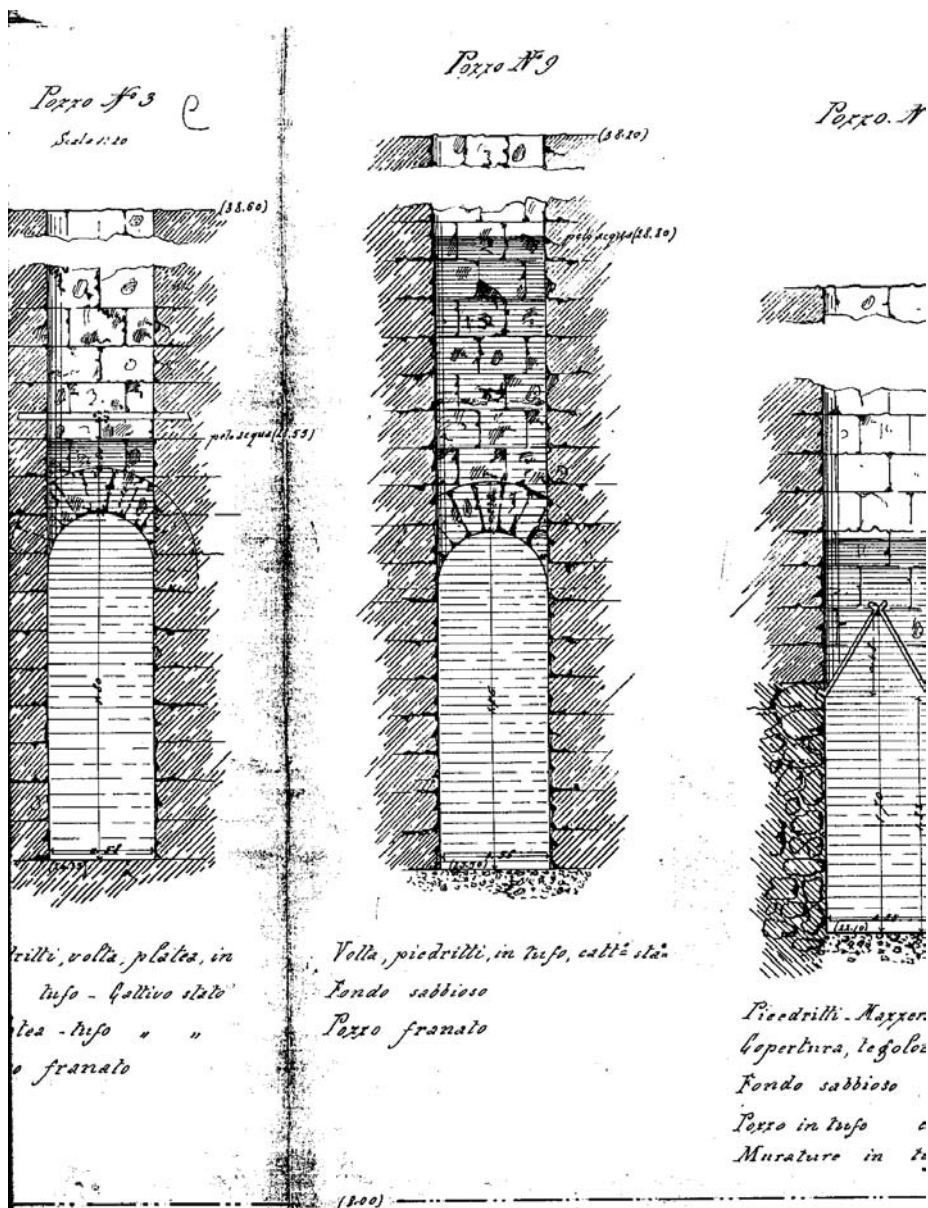 Pozzo Nº 3
Scala 1:20
(38.60)
pelo acqua
piedritti, volta, platea, in
tufo - Cattivo stato
platea - tufo " "
franato
Pozzo Nº 9
(38.20)
pelo acqua (28.80)
(23.50)
Volta, piedritti, in tufo, catt.º sta.º
Fondo sabbioso
Pozzo franato
Pozzo. N
(22.10)
Piedritti - Mazzer
Copertura, tegoloz
Fondo sabbioso
Pozzo in tufo c
Murature in tu
(8.00)